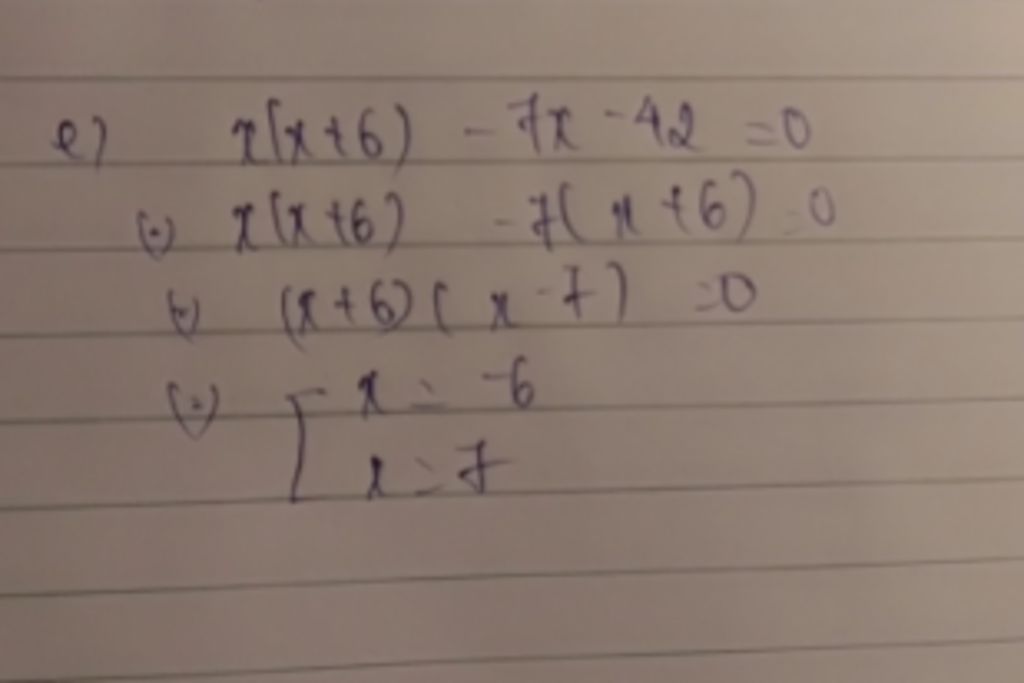 e) x(x+6) -7x -42 =0
(=) x(x+6) -7(x+6) =0
(=) (x+6)(x-7) =0
(=) [ x = -6
x = 7